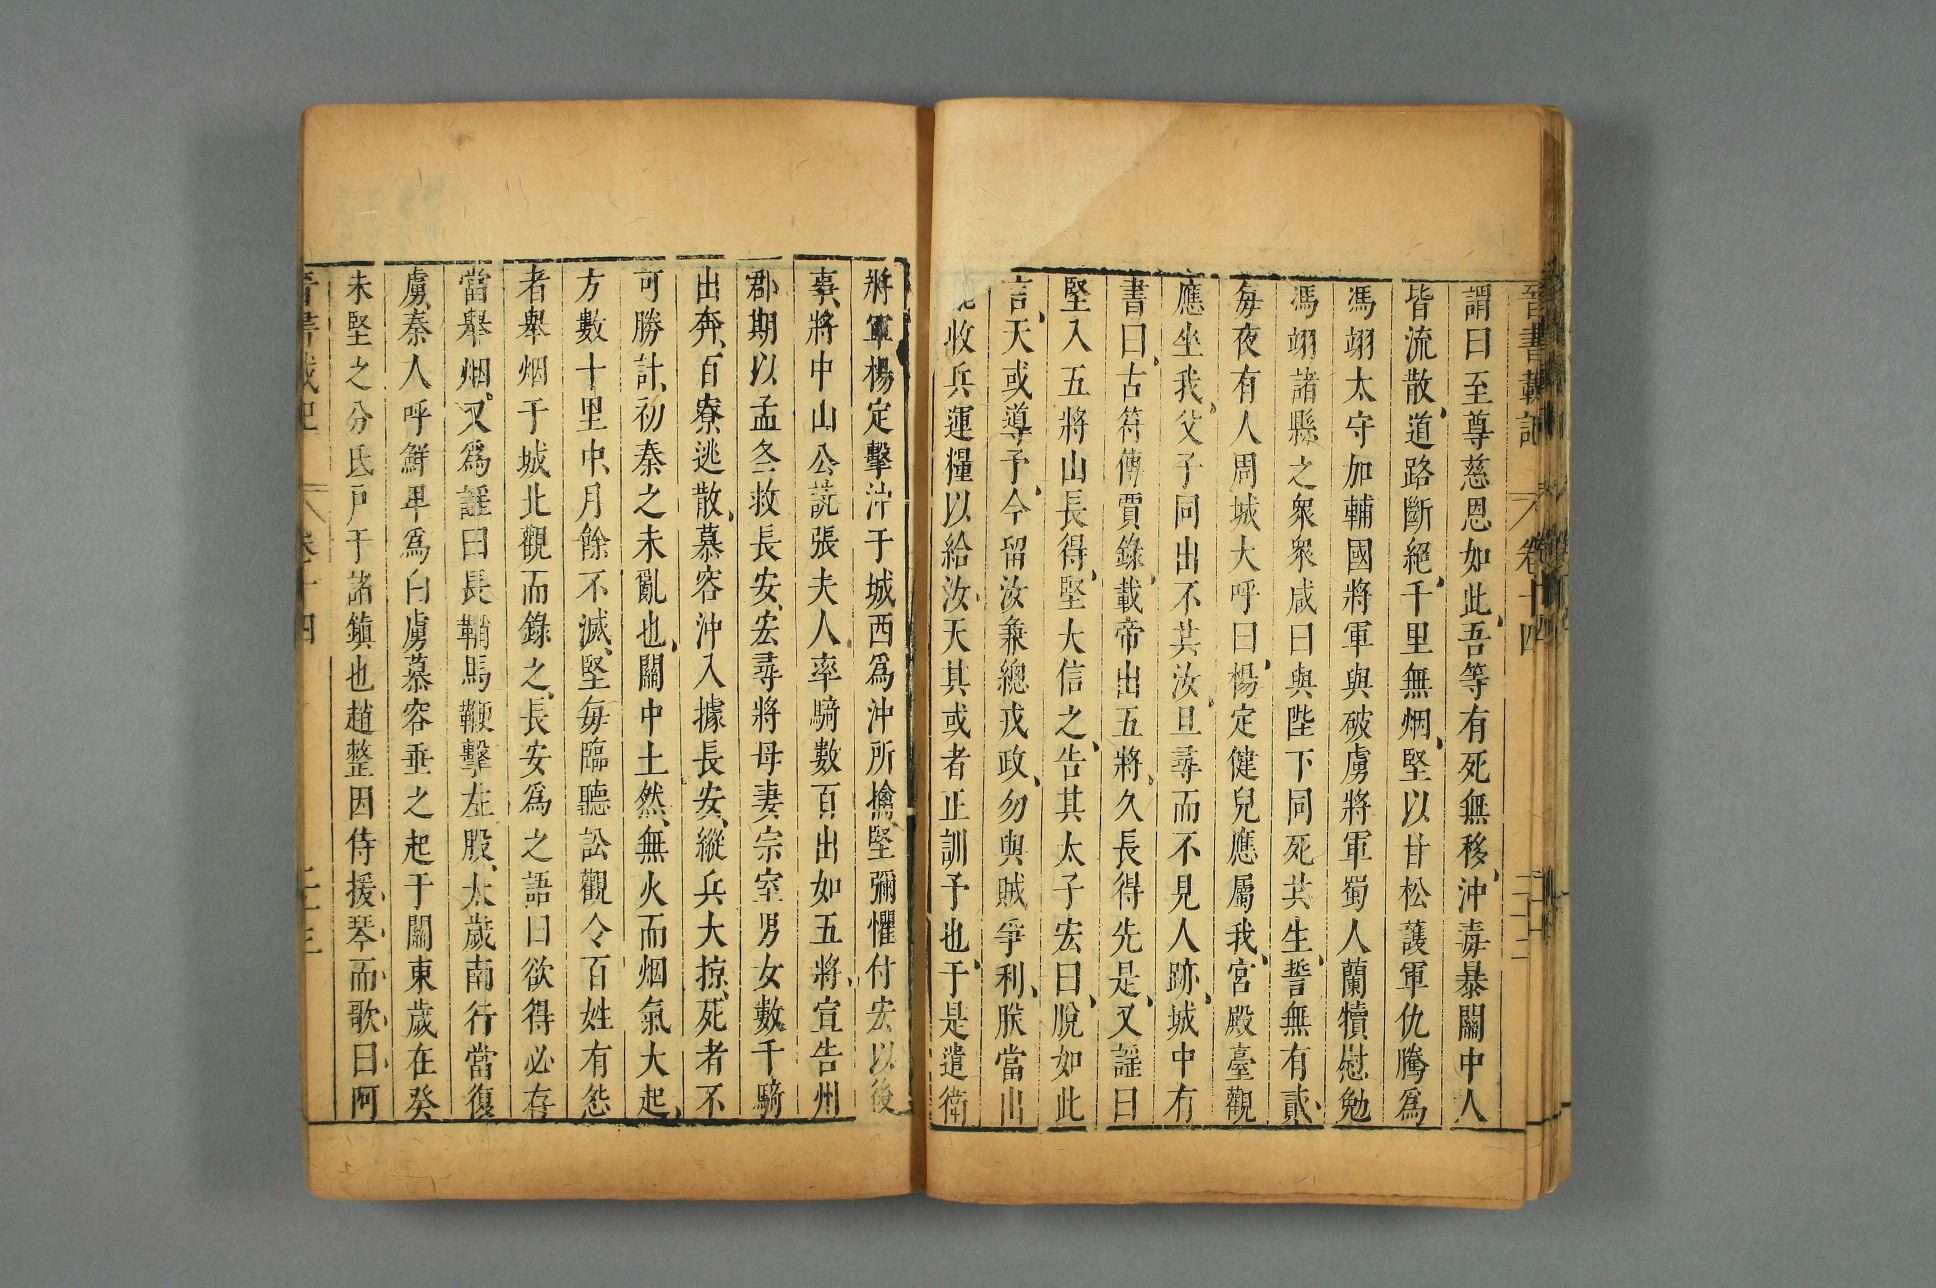 晉書載記 卷十四 二十二
謂曰至尊慈恩如此吾等有死無移沖毒暴關中人
皆流散道路斷絕千里無烟堅以甘松護軍仇騰爲
馮翊太守加輔國將軍與破虜將軍蜀人蘭犢慰勉
馮翊諸縣之衆衆咸曰與陛下同死共生誓無有貳
每夜有人周城大呼曰楊定健兒應屬我宮殿臺觀
應坐我父子同出不共汝旦尋而不見人跡城中有
書曰古符傳賈錄載帝出五將久長得先是又謠曰
堅入五將山長得堅大信之告其太子宏曰脫如此
言天或導予今留汝兼總戎政勿與賊爭利朕當出
收兵運糧以給汝天其或者正訓予也于是遣衛
將軍楊定擊沖于城西爲沖所擒堅彌懼付宏以後
事將中山公詵張夫人率騎數百出如五將宣告州
郡期以孟冬救長安宏尋將母妻宗室男女數千騎
出奔百寮逃散慕容沖入據長安縱兵大掠死者不
可勝計初秦之未亂也關中土然無火而烟氣大起
方數十里中月餘不滅堅每臨聽訟觀令百姓有怨
者舉烟于城北觀而錄之長安爲之語曰欲得必存
當舉烟又爲謠曰長鞘馬鞭擊左股太歲南行當復
虜秦人呼鮮卑爲白虜慕容垂之起于關東歲在癸
未堅之分氐戶于諸鎮也趙整因侍援琴而歌曰阿
晉書載記 卷十四